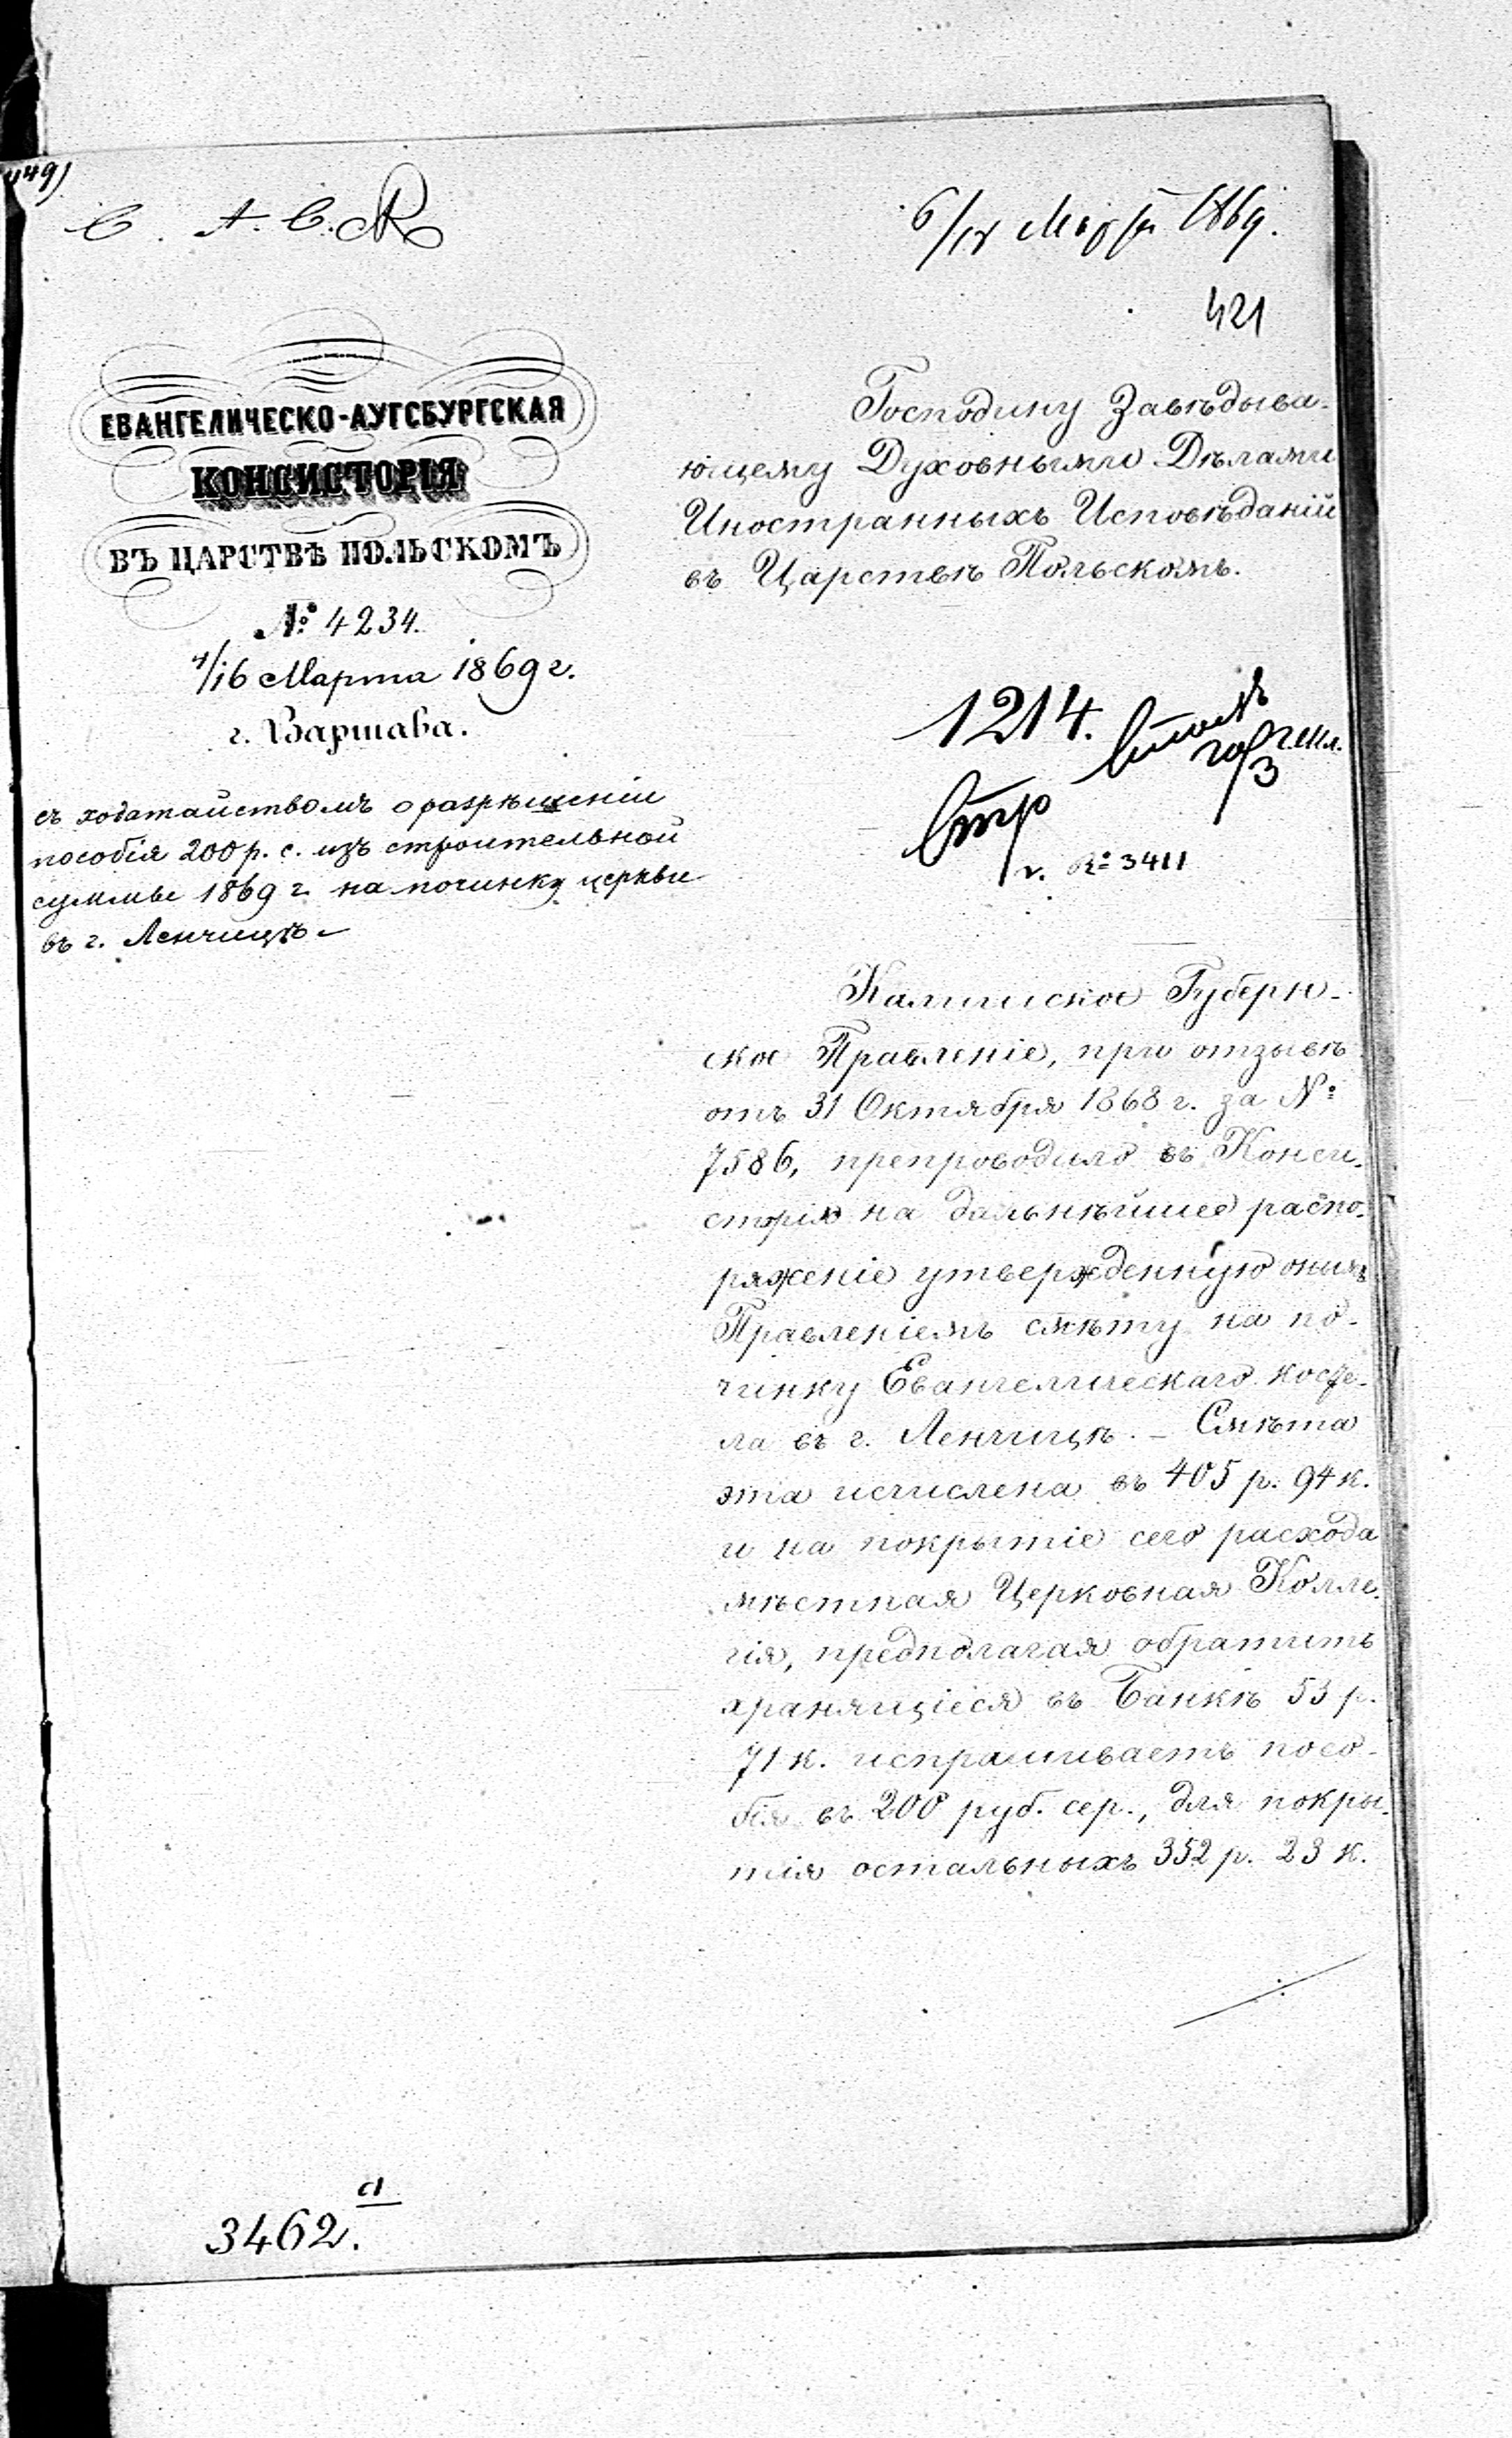 449)
6/18 Марта 1869.
421
ЕВАНГЕЛИЧЕСКО-АУГСБУРГСКАЯ
КОНСИСТОРІЯ
ВЪ ЦАРСТВѢ ПОЛЬСКОМЪ
№ 4234.
4/16 Марта 1869 г.
г. Варшава.
съ ходатайствомъ о разрѣшеніи
пособія 200 р. с. изъ строительной
суммы 1869 г. на починку церкви
въ г. Ленчицѣ
Господину Завѣдыва-
ющему Духовными Дѣлами
Иностранныхъ Исповѣданій
въ Царствѣ Польскомъ.
1214.
№ 3411
Калишское Губерн-
ское Правленіе, при отзывѣ
отъ 31 Октября 1868 г. за №
7586, препроводило въ Конси-
сторію на дальнѣйшее распо-
ряженіе утвержденную онымъ
Правленіемъ смѣту на по-
чинку Евангелическаго косце-
ла въ г. Ленчицѣ. – Смѣта
эта исчислена въ 405 р. 94 к.
и на покрытіе сего расхода
мѣстная Церковная Колле-
гія, предполагая обратить
хранящіеся въ Банкѣ 53 р.
71 к. испрашиваетъ посо-
бія въ 200 руб. сер., для покры-
тія остальныхъ 352 р. 23 к.
3462.